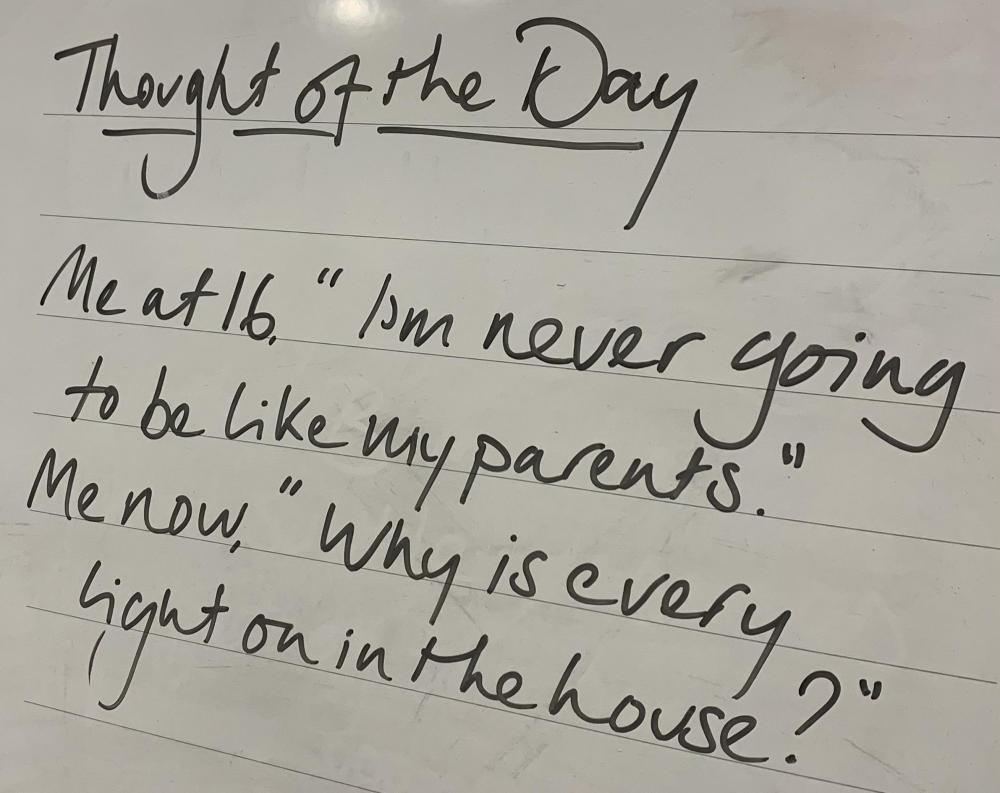 Thought of the Day
Me at 16, "I'm never going
to be like my parents."
Me now, "Why is every
light on in the house?"